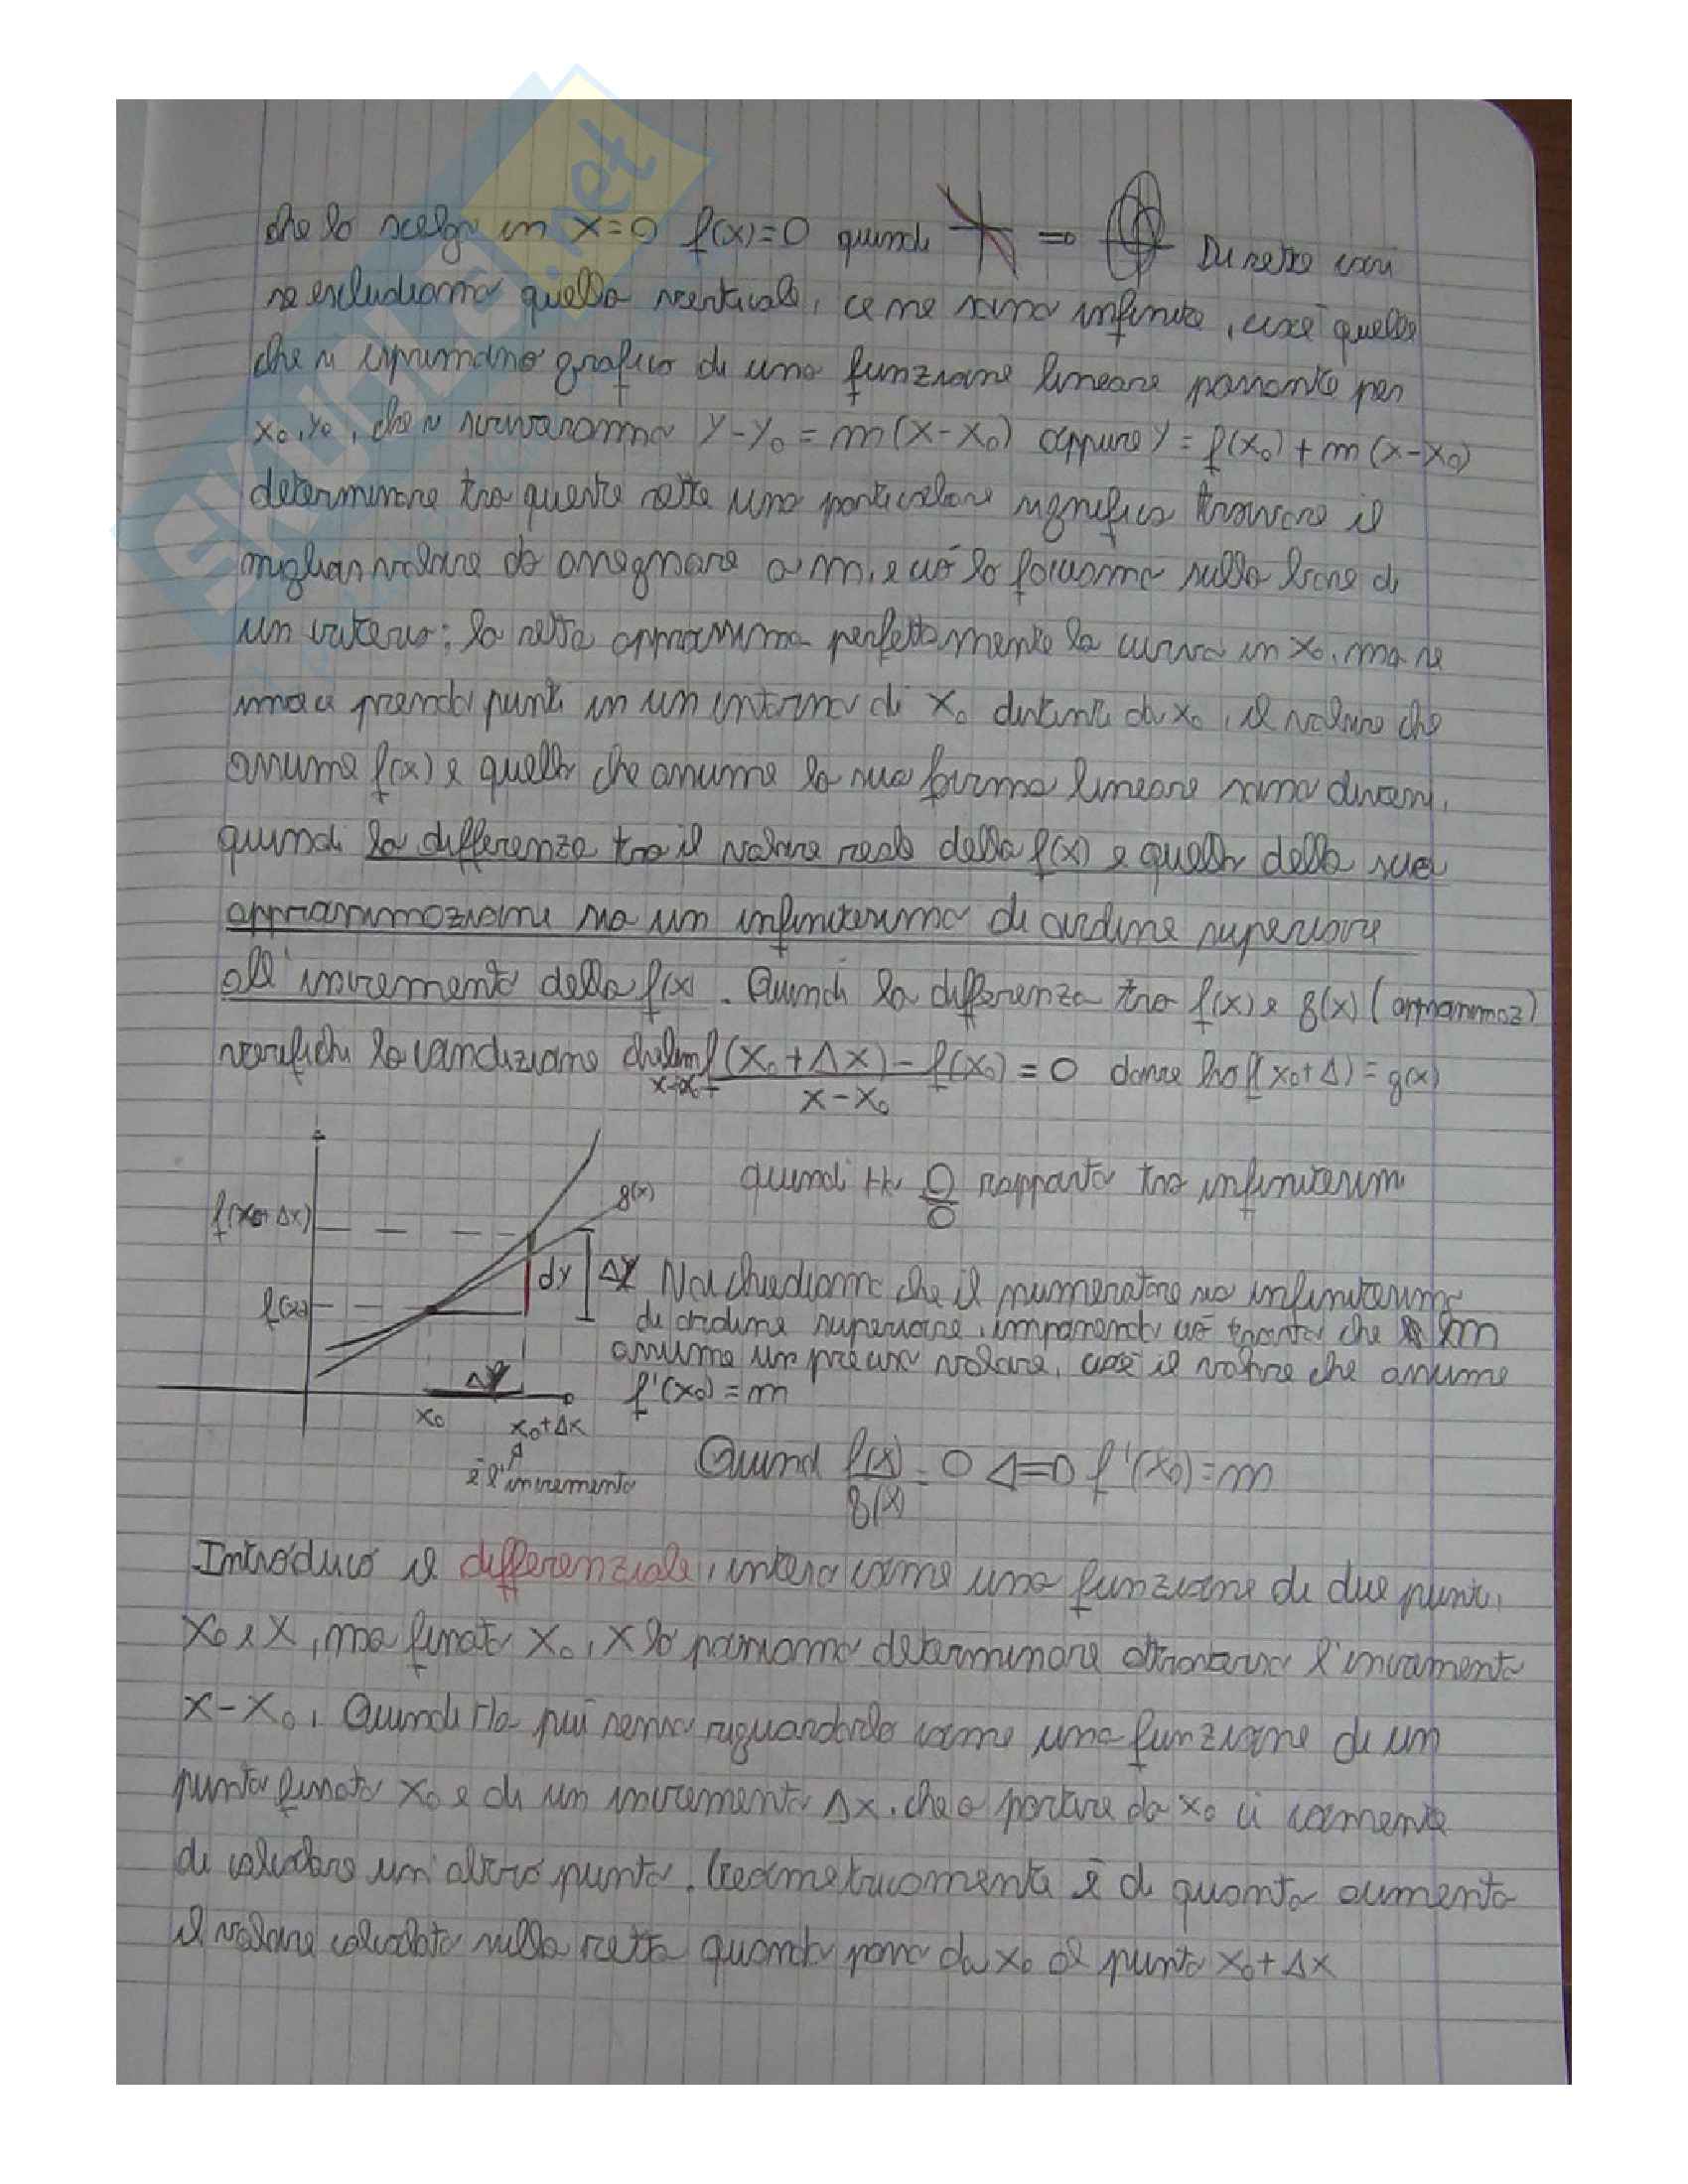 che lo scelgo in x=0 f(x)=0 quindi ⇒ Di rette così
se escludiamo quella verticale, ce ne sono infinite, cioè quelle
che si esprimono grafico di una funzione lineare passante per
x₀,y₀, che si scriveranno y-y₀ = m(x-x₀) oppure y = f(x₀)+m(x-x₀)
determinare tra queste rette una particolare significa trovare il
miglior valore da assegnare a m, e ciò lo facciamo sulla base di
un criterio: la retta approssima perfettamente la curva in x₀, ma se
invece prendo punti in un intorno di x₀ distinti da x₀, il valore che
assume f(x) e quello che assume la sua forma lineare sono diversi,
quindi la differenza tra il valore reale della f(x) e quello della sua
approssimazione sia un infinitesimo di ordine superiore
all'incremento della f(x). Quindi la differenza tra f(x) e g(x) (approssimaz)
verifichi la condizione che lim f(x₀+Δx)-f(x₀) = 0 dove ho f(x₀+Δ)=g(x)
x-x₀
quindi Ho 0/0 rapporto tra infinitesimi
g(x)
f(x₀+Δx)
dy Δy Noi chiediamo che il numeratore sia infinitesimo
f(x₀)
di ordine superiore, imponendo ciò trovato che m
assume un preciso valore, cioè il valore che assume
f'(x₀)=m
x₀ x₀+Δx
è l'incremento
Quindi f(x)/g(x) = 0 ⇔ f'(x₀)=m
Introduco il differenziale, inteso come una funzione di due punti,
x₀ e x, ma fissato x₀, x lo possiamo determinare attraverso l'incremento
x-x₀, Quindi Ha più senso riguardarlo come una funzione di un
punto fissato x₀ e di un incremento Δx, che a partire da x₀ ci consente
di calcolare un altro punto. Geometricamente è di quanto aumenta
il valore calcolato sulla retta quando passo da x₀ al punto x₀+Δx